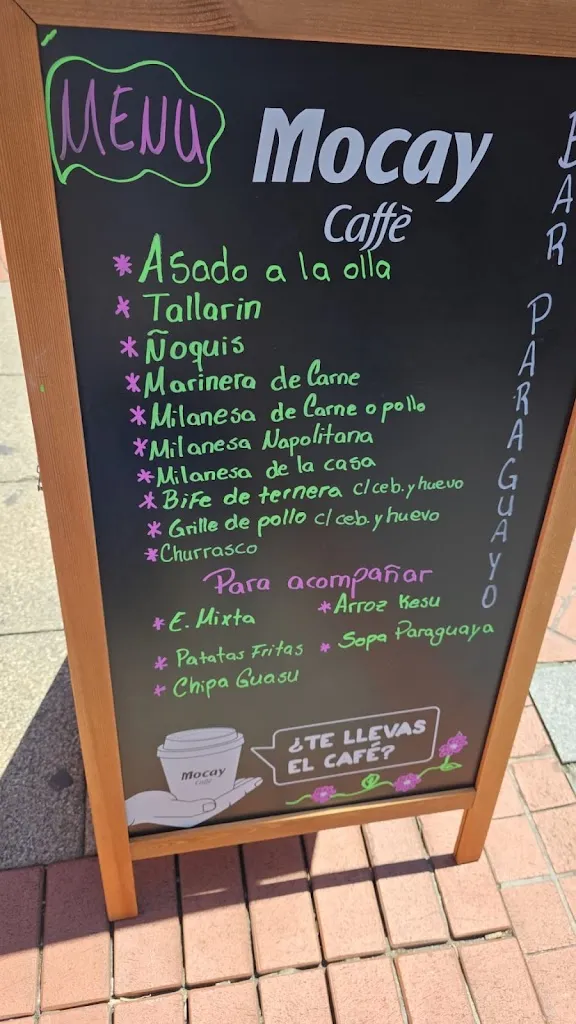 MENU
Mocay
Caffè
BAR PARAGUAYO
* Asado a la olla
* Tallarin
* Ñoquis
* Marinera de Carne
* Milanesa de Carne o pollo
* Milanesa Napolitana
* Milanesa de la casa
* Bife de ternera c/ceb. y huevo
* Grille de pollo c/ceb. y huevo
* Churrasco
Para acompañar
* E. Mixta
* Patatas Fritas
* Chipa Guasu
* Arroz Kesu
* Sopa Paraguaya
Mocay
Caffè
¿TE LLEVAS
EL CAFÉ?